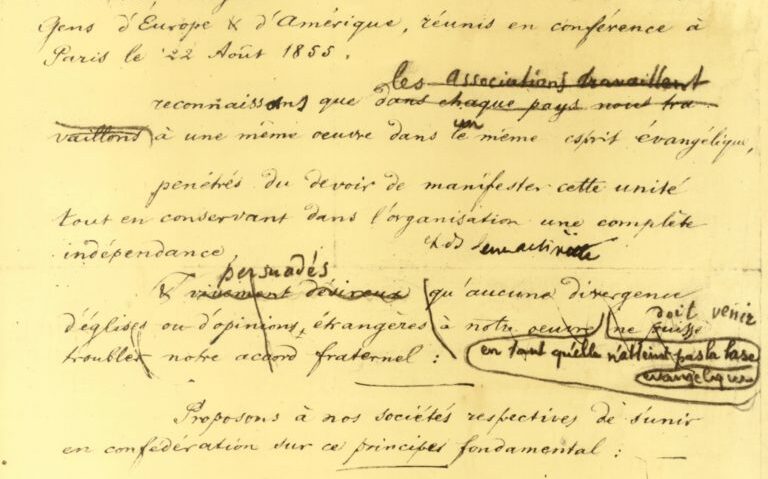 gens d'Europe & d'Amérique, réunis en conférence à
Paris le 22 Août 1855,
les associations travaillent
reconnaissons que dans chaque pays nous tra-
vaillons à une même oeuvre dans le même esprit évangélique,
un
pénétrés du devoir de manifester cette unité
tout en conservant dans l'organisation une complète
indépendance
& ds leur activité
persuadés
& vivement désireux qu'aucune divergence
doit venir
d'églises ou d'opinions, étrangères à notre oeuvre ne puisse
troubler notre accord fraternel :
en tant qu'elle n'atteint pas la base
évangélique
Proposons à nos sociétés respectives de s'unir
en confédération sur ce principes fondamental :